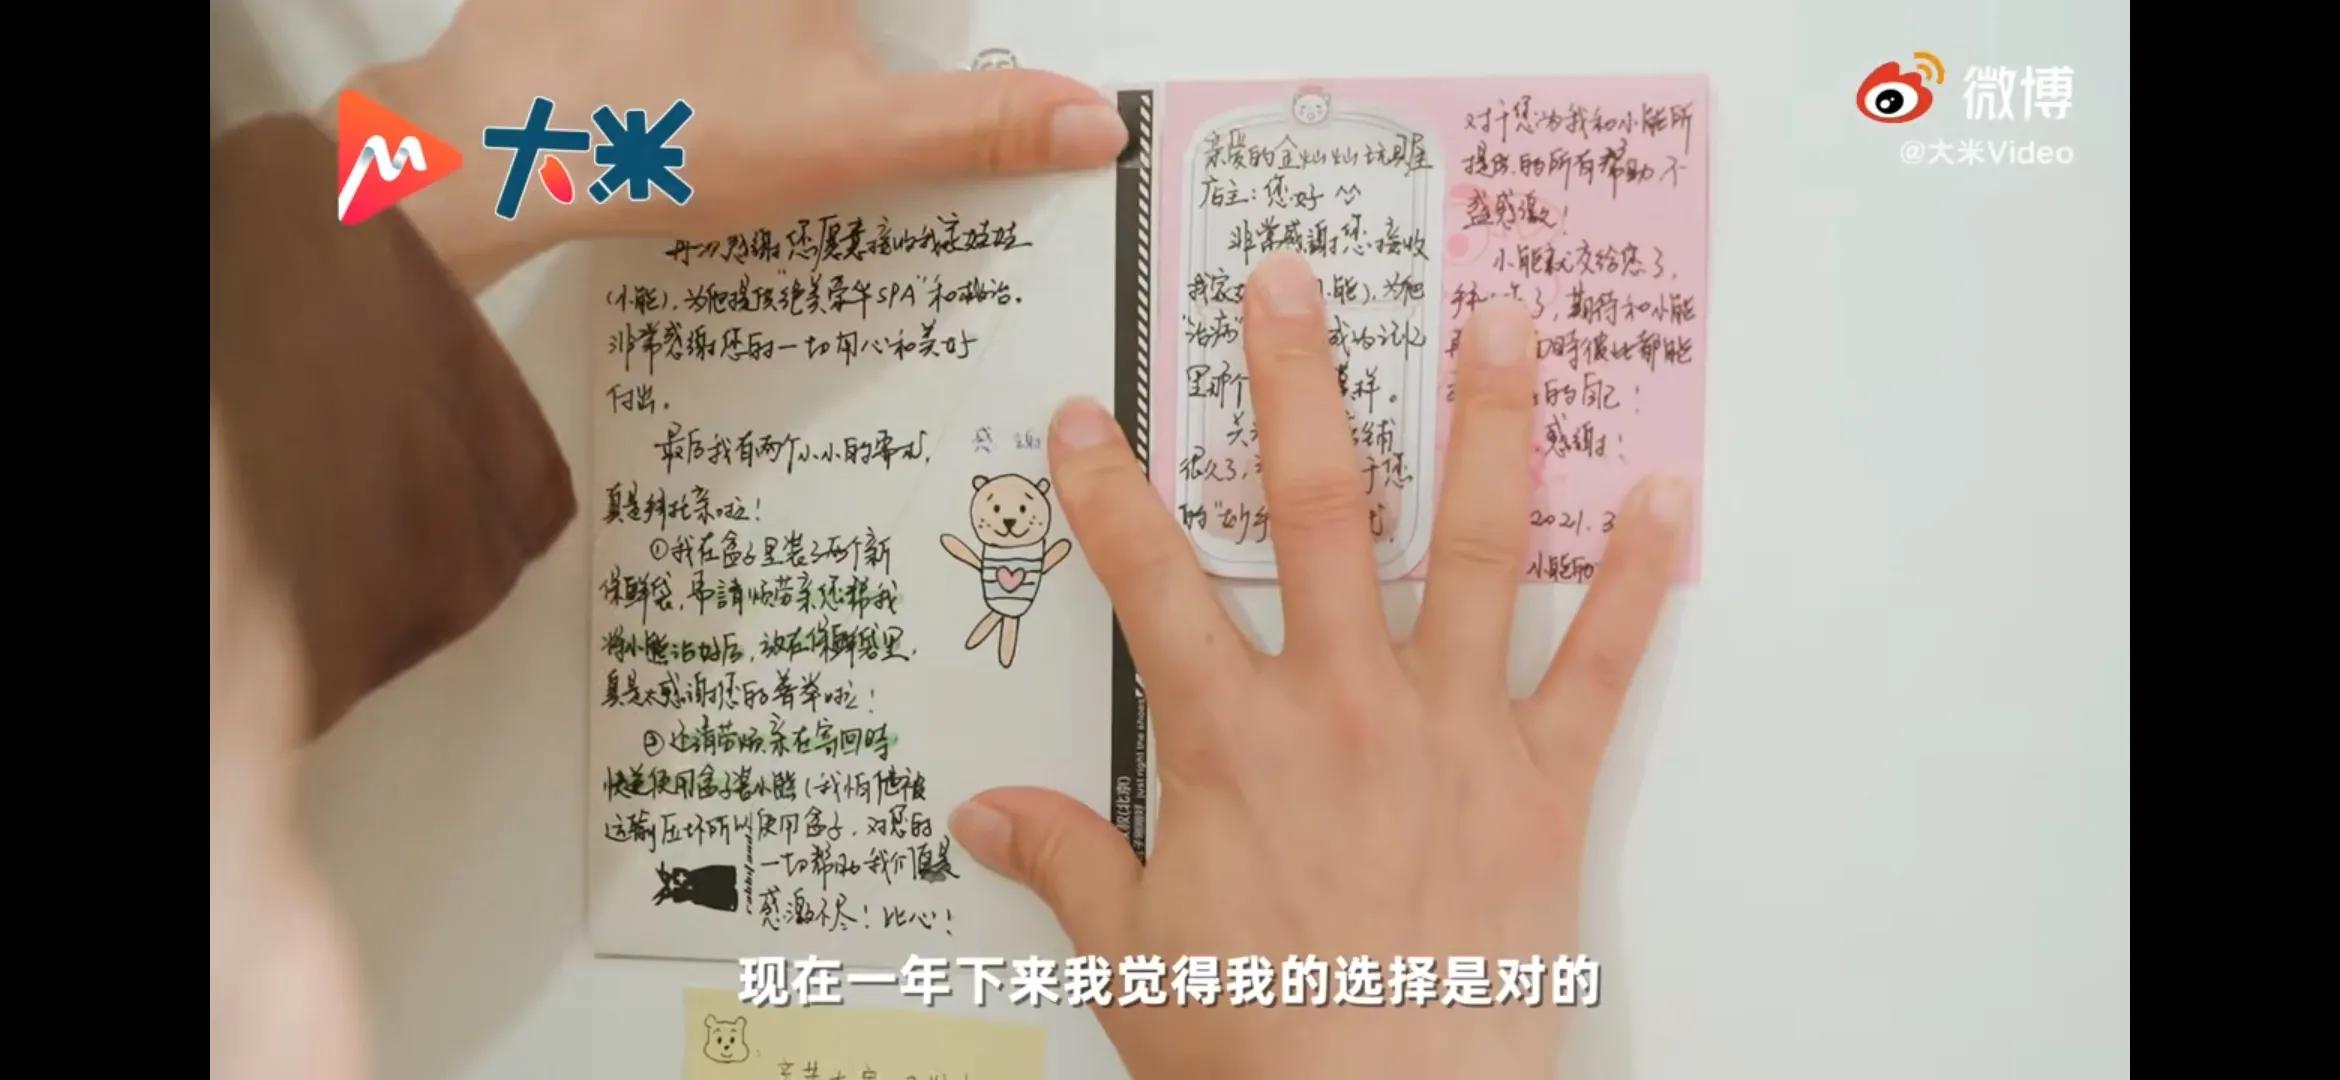 大米
微博
@大米Video
再次感谢您愿意接收我家娃娃
(小熊),为他提供"绝美豪华SPA"和救治。
非常感谢您的一切用心和美好
付出。
最后我有两个小小的需求,
真是拜托亲啦!
①我在盒子里装了两个新
保鲜袋,申請烦劳亲您帮我
将小熊治好后,放在保鲜袋里,
真是太感谢您的善举啦!
②还请劳烦亲在寄回時
快递使用盒子装小熊(我怕他被
运输压坏所以使用盒子,对您的
一切帮助我们真是
感激不尽!比心!!
感 謝
亲爱的金灿灿玩具屋
店主:您好^^
非常感謝您接收
我家 小熊),为他
"治病" 成为记忆
里那个 模样。
关 店铺
很久了, 于您
的"妙手
对于您为我和小熊所
提供的所有帮助不
盡感激!
小熊就交给您了,
了,期待和小熊
時彼此都能
的自己!
感謝!
2021.3
小熊的
just right the shoes
(北京)
现在一年下来我觉得我的选择是对的